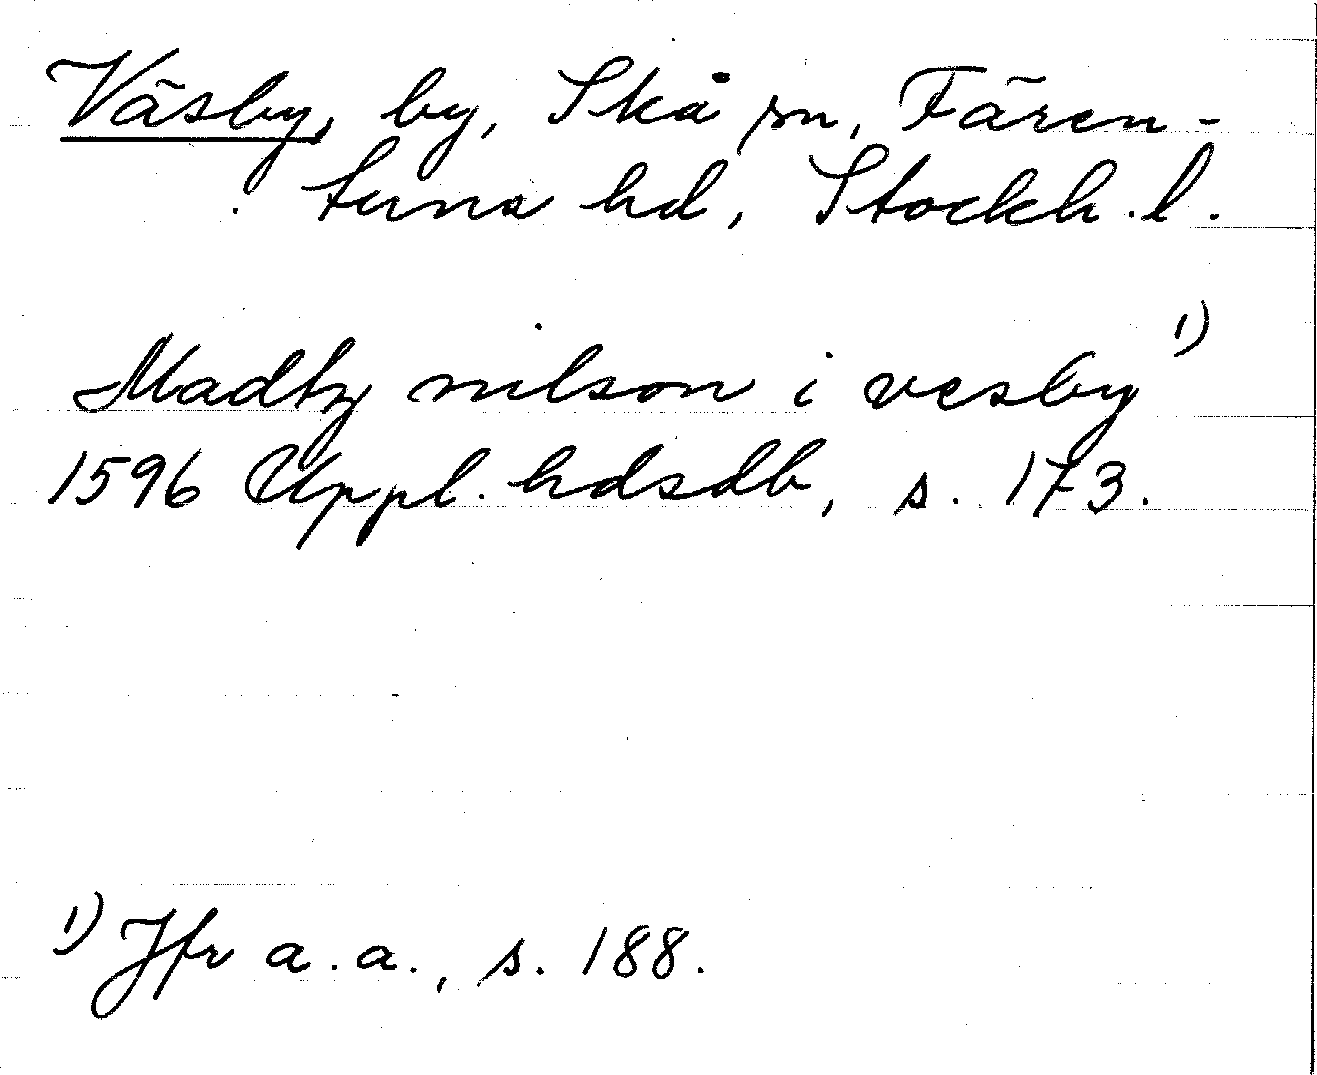 Väsby, by, Skå sn, Fären-
tuna hd, Stockh. l.
Madtz nilson i vesby 1)
1596 Uppl. hdsdb, s. 173.
1) Jfr a.a., s. 188.